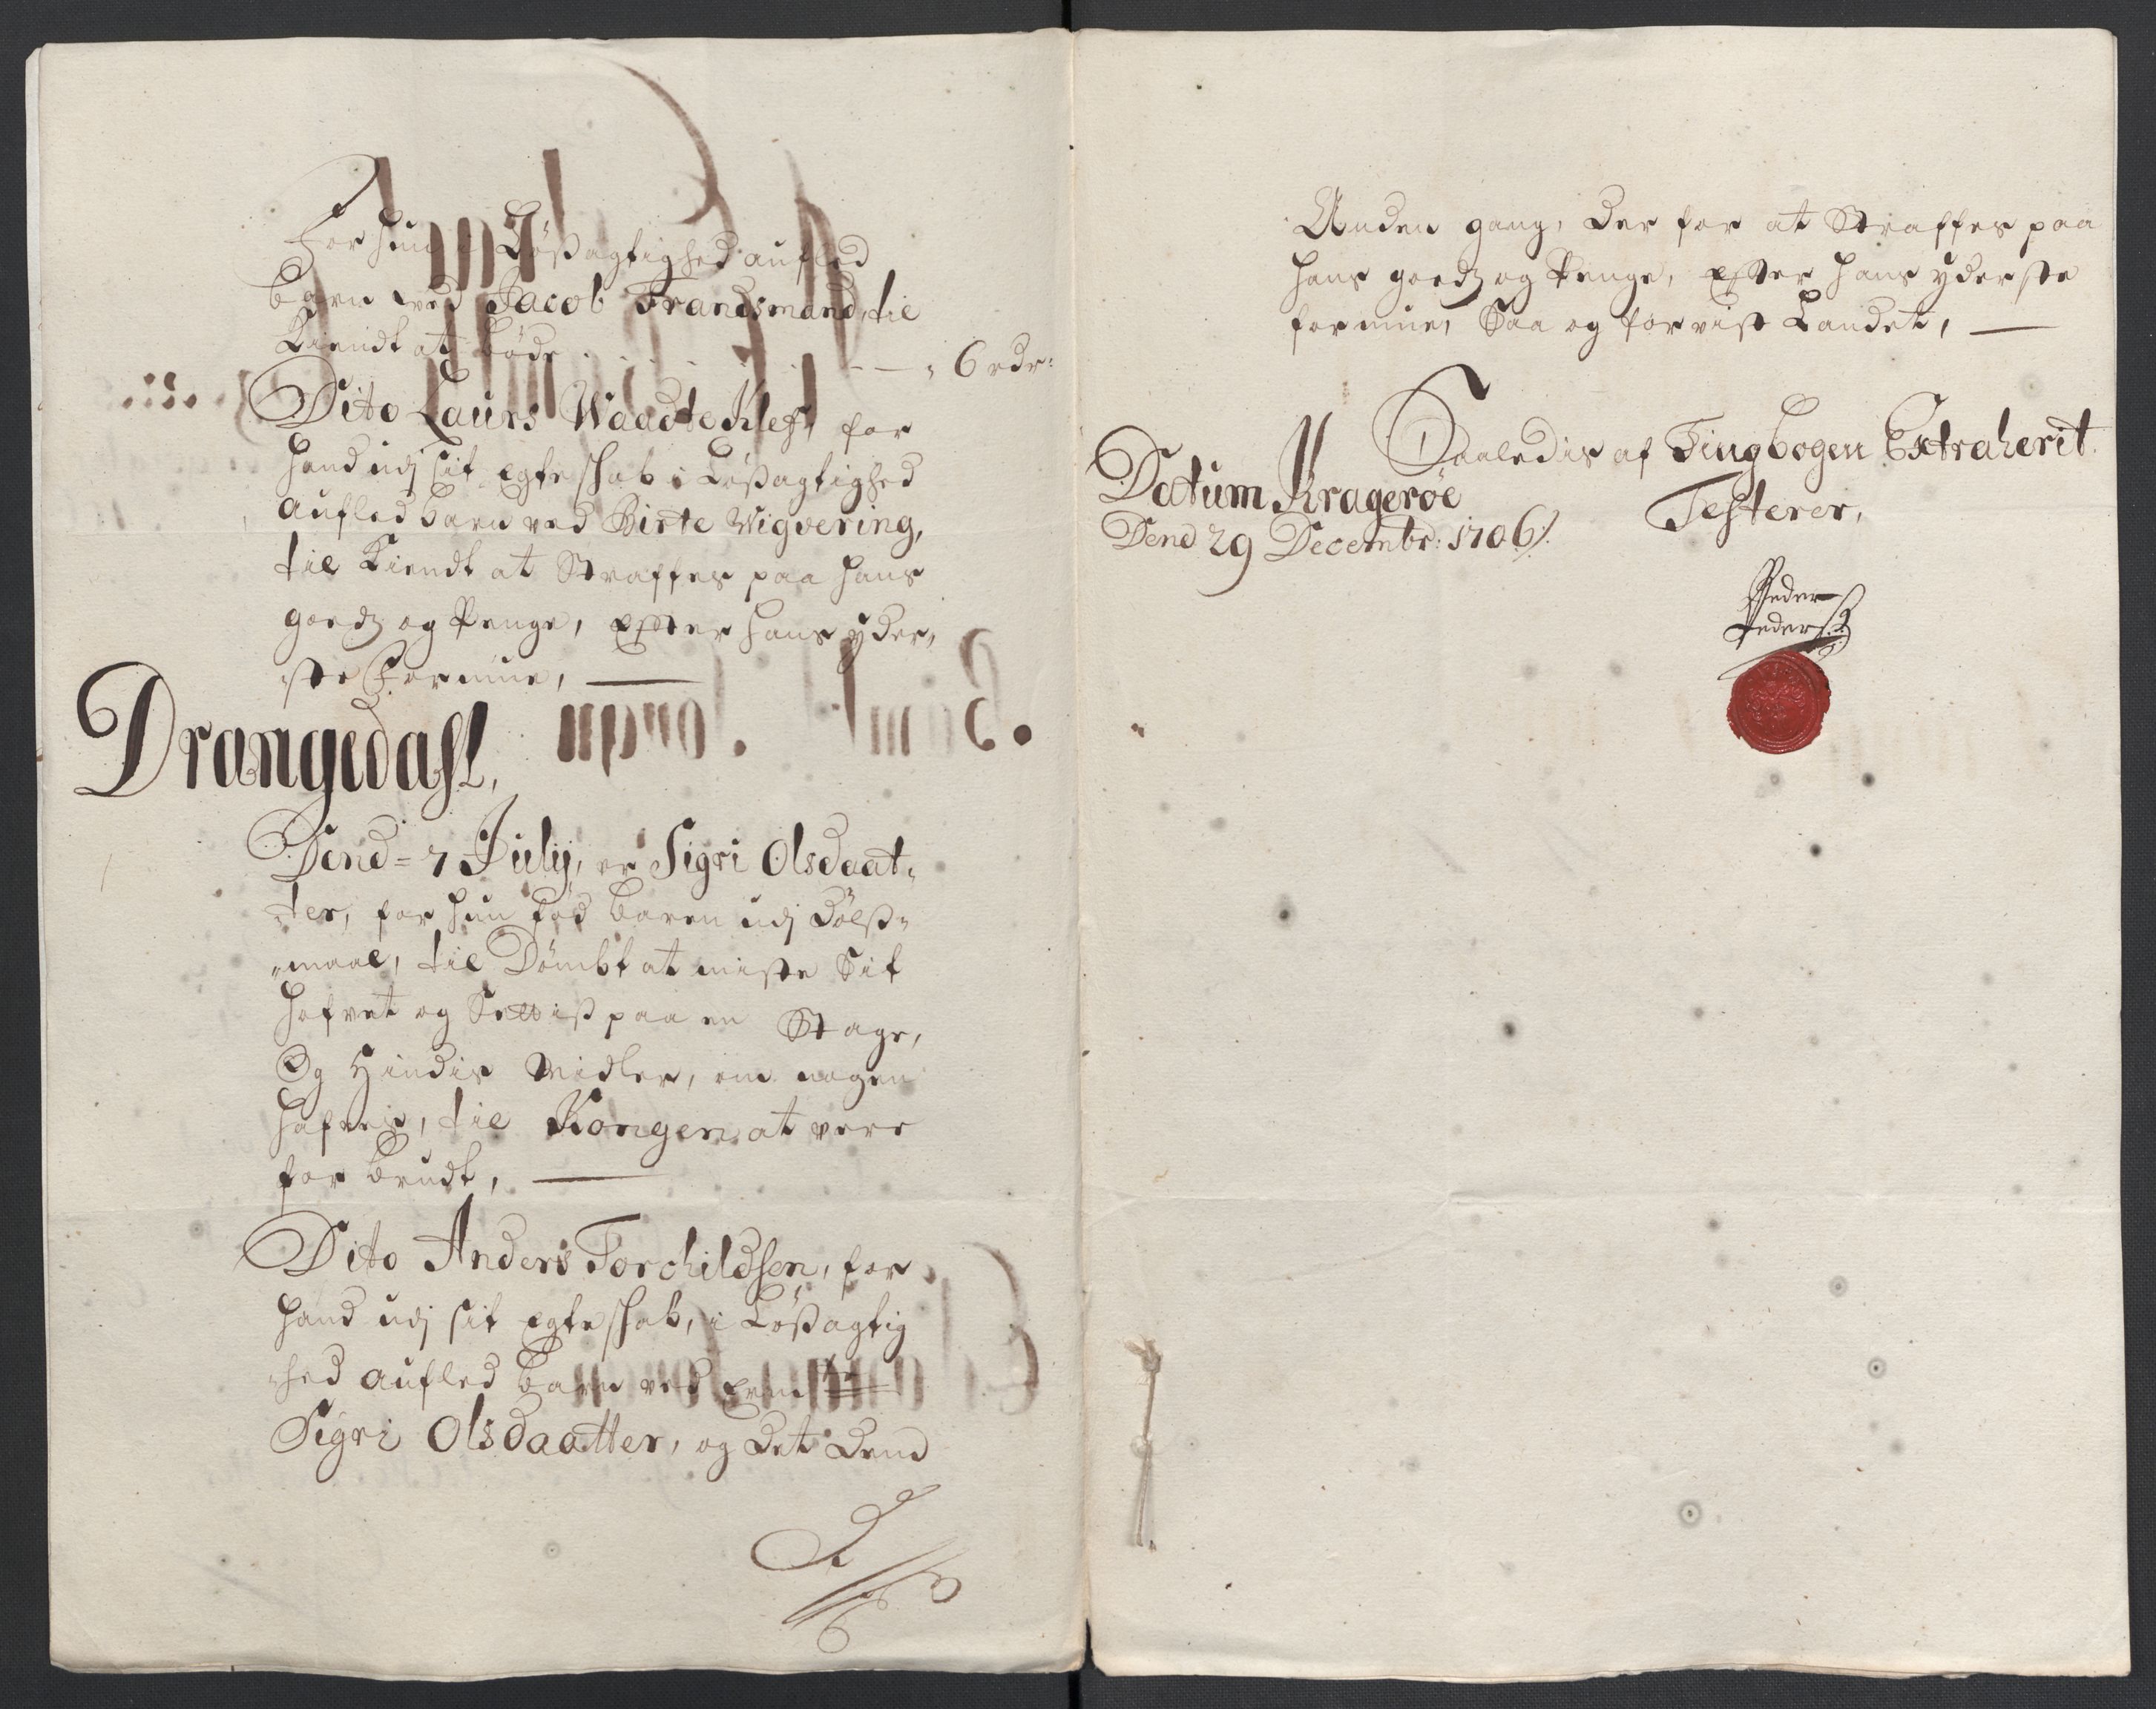 For hun i Løßagtighed aufled
barn ved Jacob Frandsmand, til
Kiendt at bøde . . . . . . - - , 6 rdr:
Dito Laurs Waadteklef, for
hand udj sit egteskab i Løßagtighed
aufled barn ved Birte Wigvering,
til Kiendt at Straffes paa hans
goedz og Penge, Efter hans yder,
ste Formue,
Drangedahl,
Dend = 7 Julij, er Sigri Olsdaat,
ter, for hun fød baren udj Dølß,,
,,maal, til Dømbt at miste Sit
hofvet og Settis paa en Stage,
Og Hindis Midler, om nogen
hafves, til Kongen at vere
for brudt,
Dito Anders Torchildsen, for
hand udj sit egteskab, i Løßagtig
hed aufled barn ved
Sigri Olsdaatter, og det dend
Anden gang, der for at Straffes paa
hans goedz og Penge, Efter hans yderste
formue, Saa og forvist Landet,
Saaledis af Tingbogen Extraherit
Datum Kragerøe
Testerer,
Dend 29 Decembr: 1706/.
Peder
Peders: